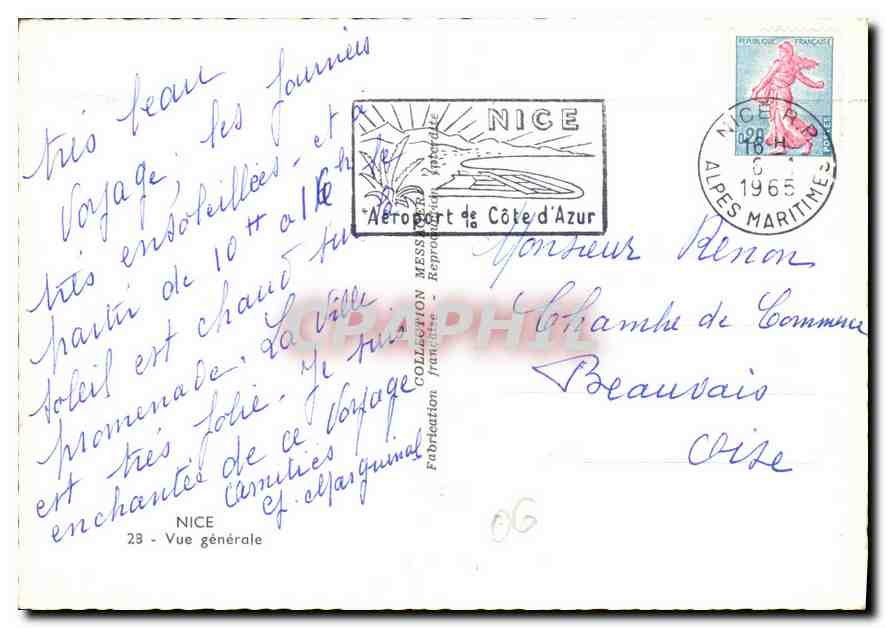 très beau
Voyage, les journées
très ensoleillées - et à
partir de 10H à 16h le
soleil est chaud sur la
promenade. La Ville
est très jolie. Je suis
enchantée de ce Voyage
Amitiés
NICE
23 - Vue générale
COLLECTION MESSAGER
Fabrication française - Reproduction interdite
NICE
Aéroport de la Côte d'Azur
REPUBLIQUE FRANÇAISE
0,20
POSTES
NICE R.P.
16 H
6 - 1
1965
ALPES MARITIMES
Monsieur Renon
Chambre de Commerce
Beauvais
Oise
06
CPAPHIL